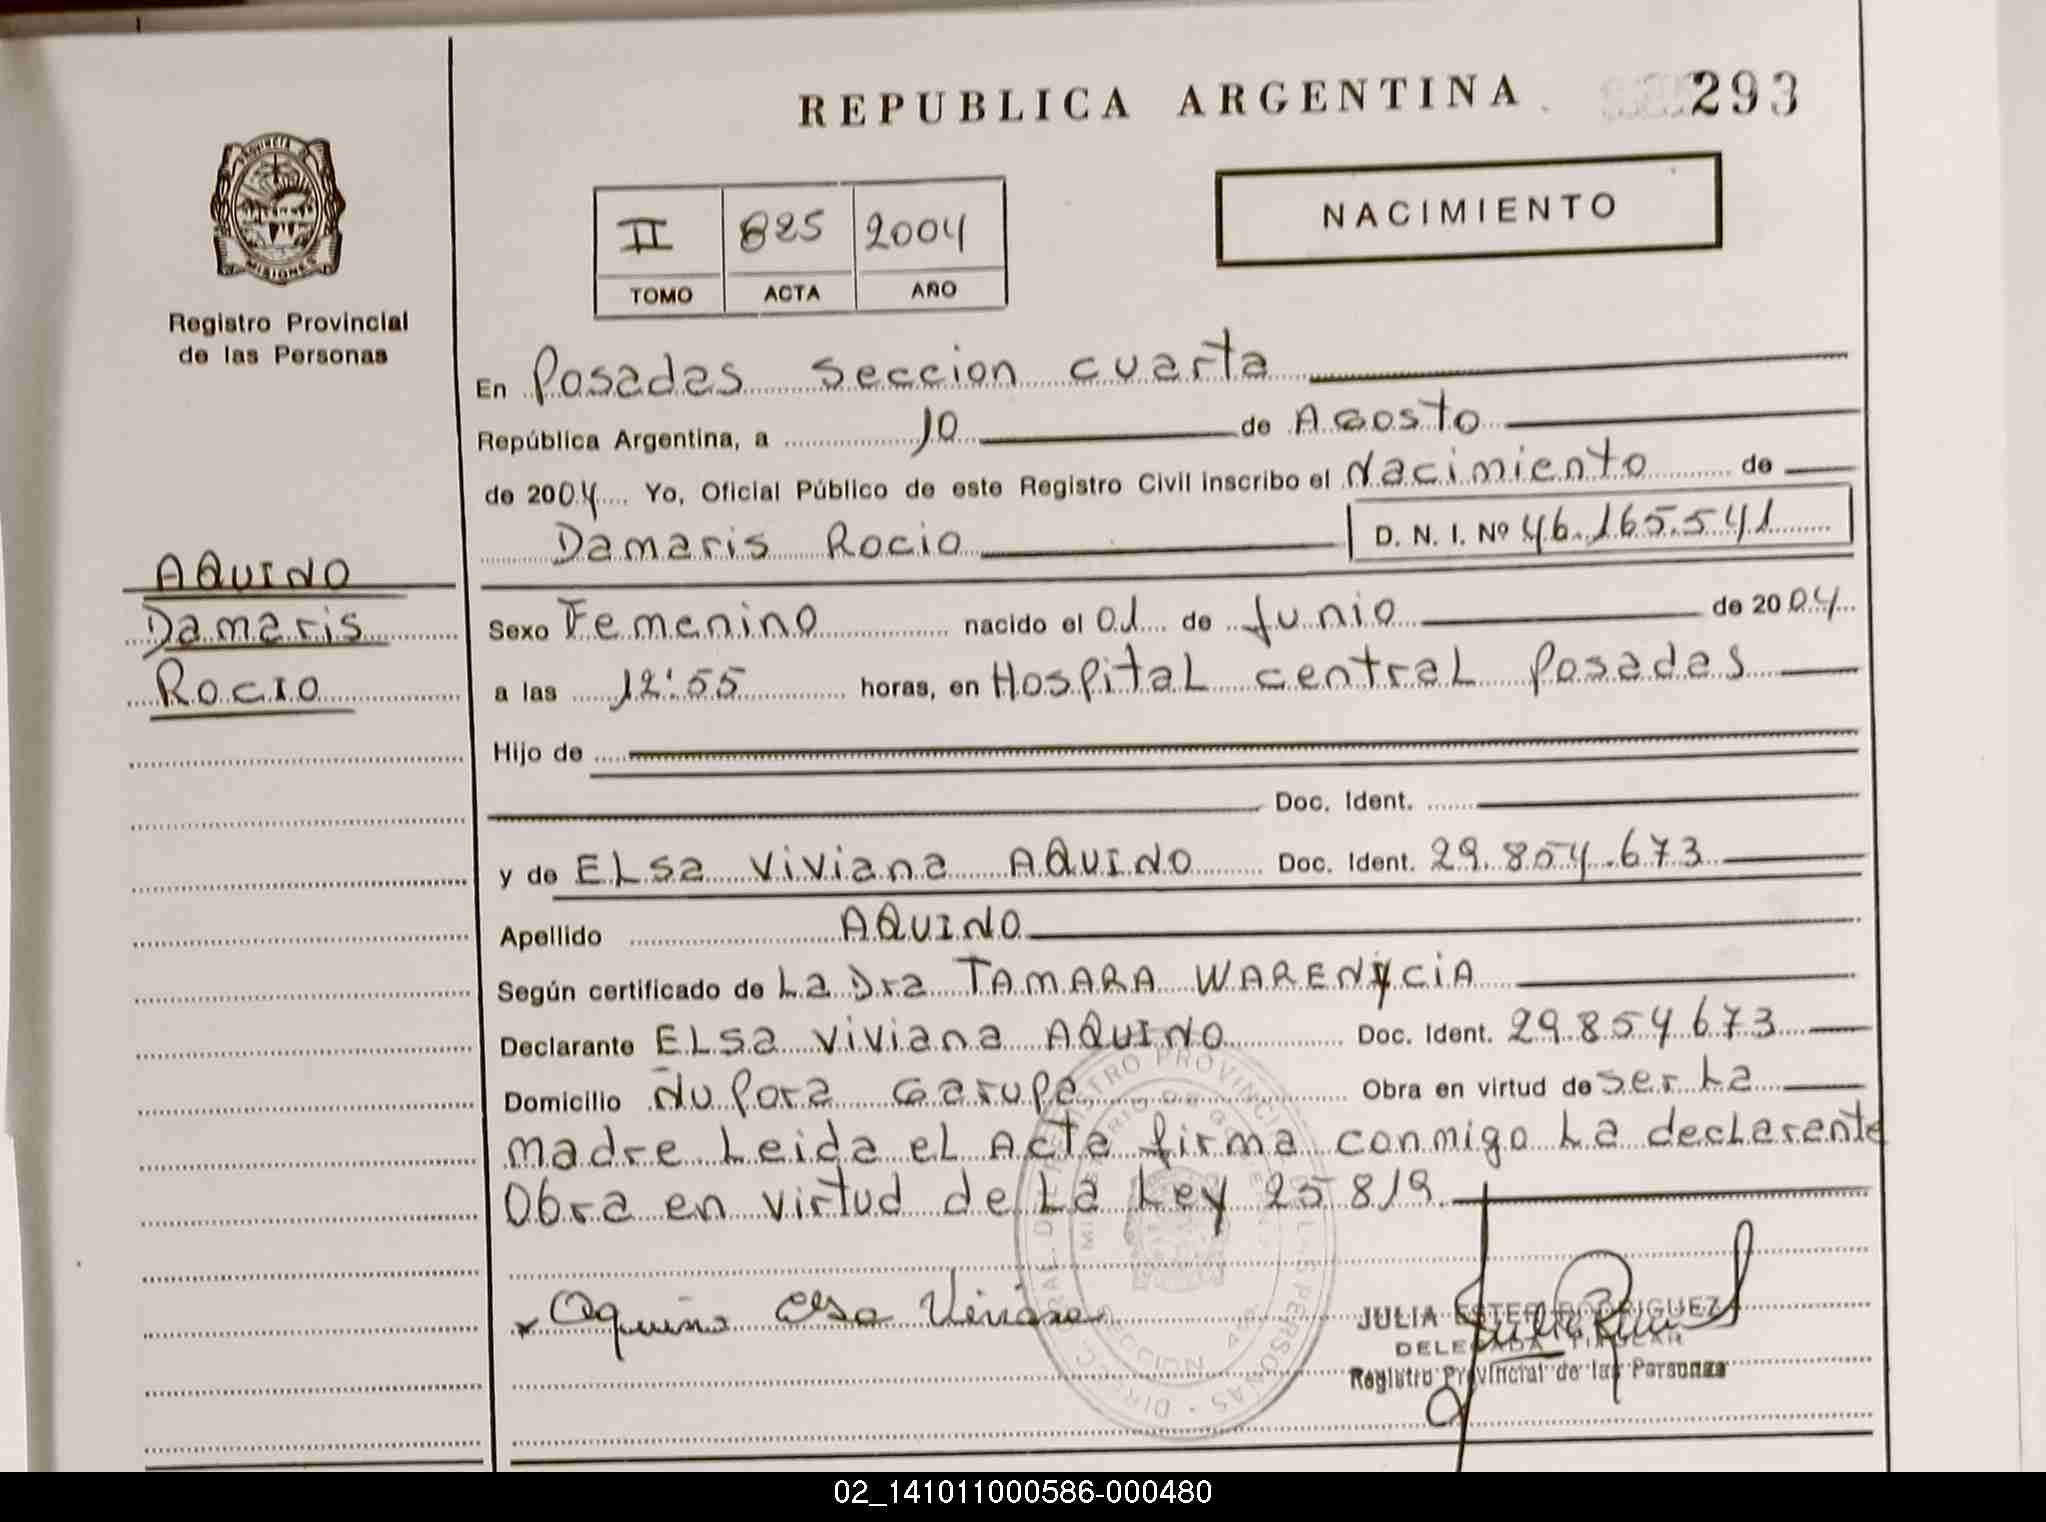 REPUBLICA ARGENTINA
293
PROVINCIA DE
MISIONES
Registro Provincial
de las Personas
II 825 2004
TOMO ACTA AÑO
NACIMIENTO
En Posadas seccion cuarta
República Argentina, a 10 de Agosto
de 2004 Yo, Oficial Público de este Registro Civil inscribo el Nacimiento de
Damaris Rocio D. N. I. Nº 46.165.541
AQUINO
Damaris
Rocio
Sexo Femenino nacido el 01 de Junio de 2004
a las 12:55 horas, en Hospital central Posadas
Hijo de
Doc. Ident.
y de ELsa Viviana AQUINO Doc. Ident. 29.854.673
Apellido AQUINO
Según certificado de La Dra TAMARA WARENYCIA
Declarante ELsa Viviana AQUINO Doc. Ident. 29.854673
Domicilio Ñu Pora Garupa Obra en virtud de ser La
madre Leida el Acta firma conmigo La declarante
Obra en virtud de La Ley 25819
Aquino Elsa Viviana
JULIA ESTER RODRIGUEZ
DELEGADA TITULAR
Registro Provincial de las Personas
02_141011000586-000480